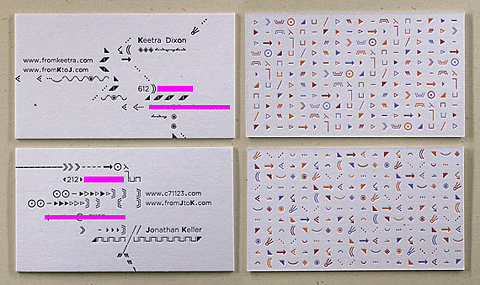 Keetra Dixon
www.fromkeetra.com
www.fromKtoJ.com
612
212
www.c71123.com
www.fromJtoK.com
Jonathan Keller